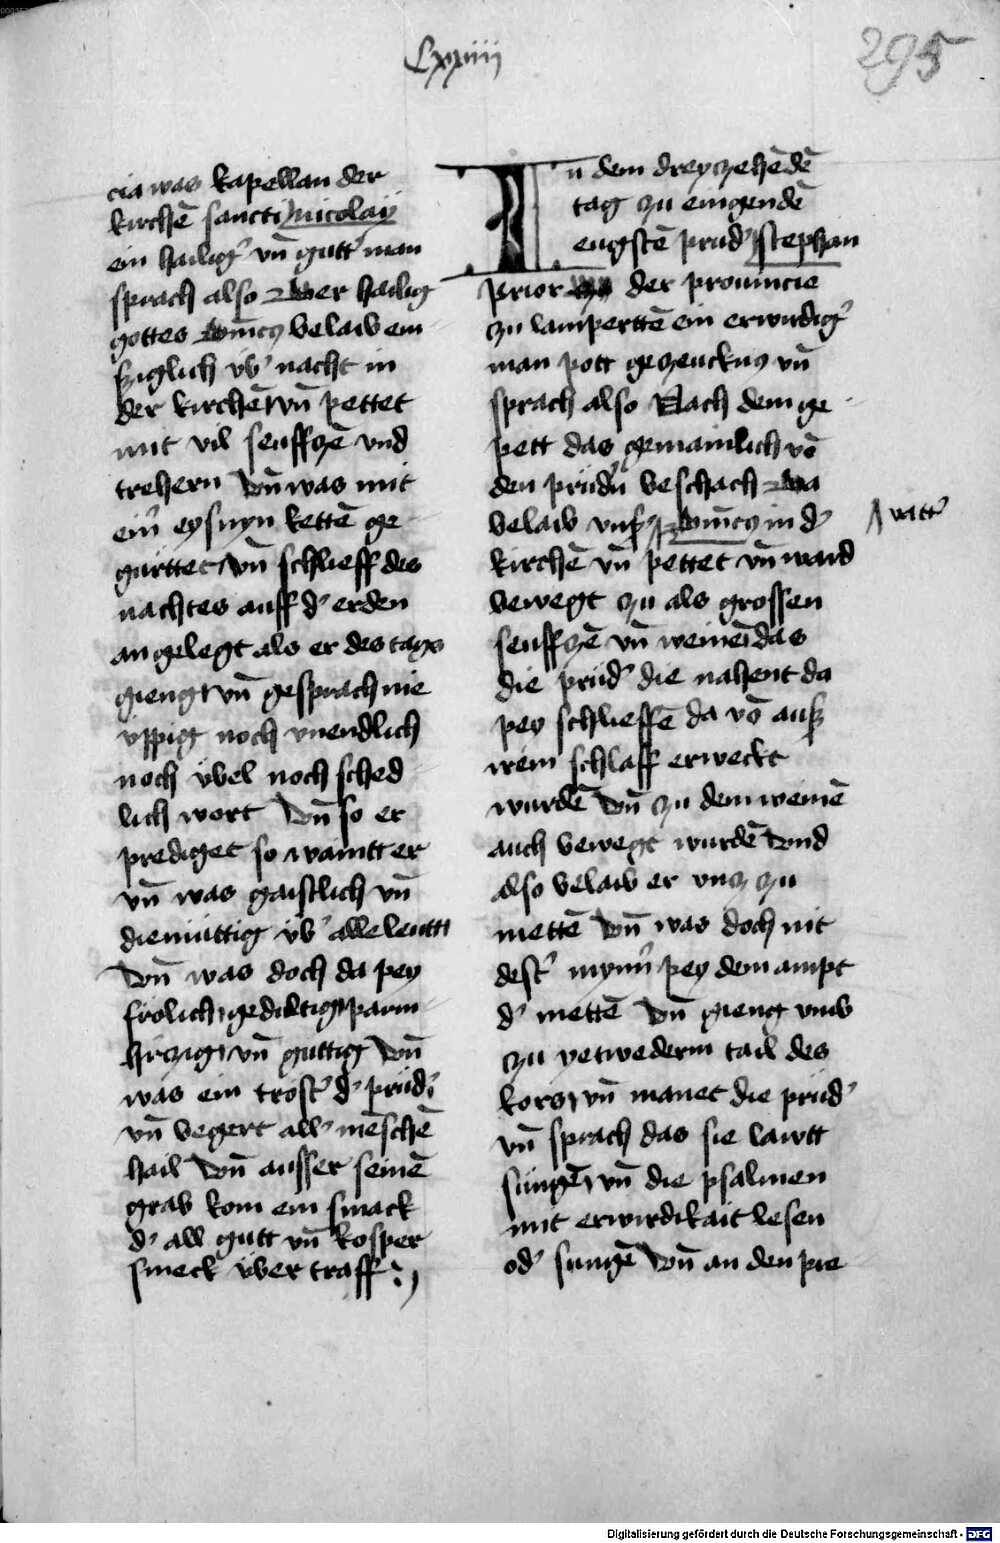 Lxxiiii
295
cia was kapellan der
kirchē sancti nicolay
ein hailig' vn̄ gutt' man
sprach also Der heilig
gottes domīcꝫ belaib ein
ziglich vb' nacht in
der kirchē vn̄ pettet
mit vil seuffczē vnd
trehern Vn̄ was mit
ein' eysnyn kettē ge
gürttet vn̄ schlieff des
nachtes auff d' erden
angelegt als er des tags
gieng vn̄ gesprach nie
vppig noch vnendlich
noch übel noch sched
lich wort Vn̄ so er
prediget so waintt er
vn̄ was gaistlich vn̄
diemüttig üb' alle leutt
Vn̄ was doch da pey
frölich gedultig parm
hirczig vn̄ guttig Vn̄
was ein trost' d' prüd'
vn̄ begert all' mēschē
hail Vn̄ ausser seinē
grab kom ein smack
d' all gutt vn̄ kosper
smeck über traff
In dem dreyczehēdē
tag zu eingendē
eugstē prüd' stephan
prior der prouincie
zu lamperttē ein erwirdig'
man pott geczeuckus vn̄
sprach also Nach dem ge
pett das gemainlich vō
den prüd'n beschach Da
belaib vns' domīcꝫ in d'
vatt'
kirchē vn̄ pettet vn̄ ward
bewegt zu als grossen
seuffczē vn̄ weinē das
die prüd' die nahent da
pey schlieffē da vō auß
irem schlaff erweckt
wurdē Vn̄ zu dem weinē
auch bewegt wurdē Vnd
also belaib er vncz zu
mettē Vn̄ was doch nit
dest' mynn' pey dem ampt
d' mettē Vn̄ gieng vmb
zu yetwederm tail des
kors vn̄ manet die prüd'
vn̄ sprach das sie lawtt
süngē vn̄ die psalmen
mit erwirdikait lesen
od' sungē Vn̄ an den pre
Digitalisierung gefördert durch die Deutsche Forschungsgemeinschaft - DFG